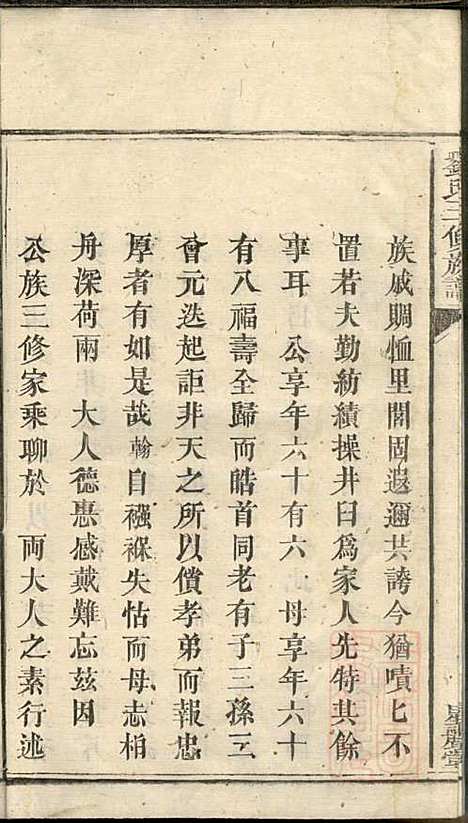 劉氏三修族譜
族戚賙恤里閭固遐邇共誇今猶嘖匕不
置若夫勤紡績操井臼爲家人先特其餘
事耳　公享年六十有六　母享年六十
有八福壽全歸而皓首同老有子三孫三
會元迭起詎非天之所以償孝弟而報忠
厚者有如是哉翰自襁褓失怙而母志柏
舟深荷兩　大人德惠感戴難忘兹因
公族三修家乘聊於　兩大人之素行述